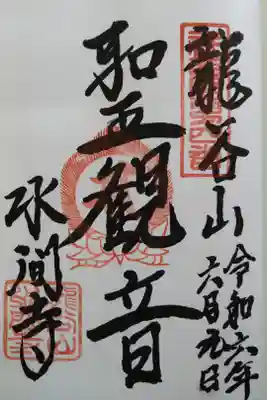 龍谷山
令和六年
六月九日
聖観音
水間寺